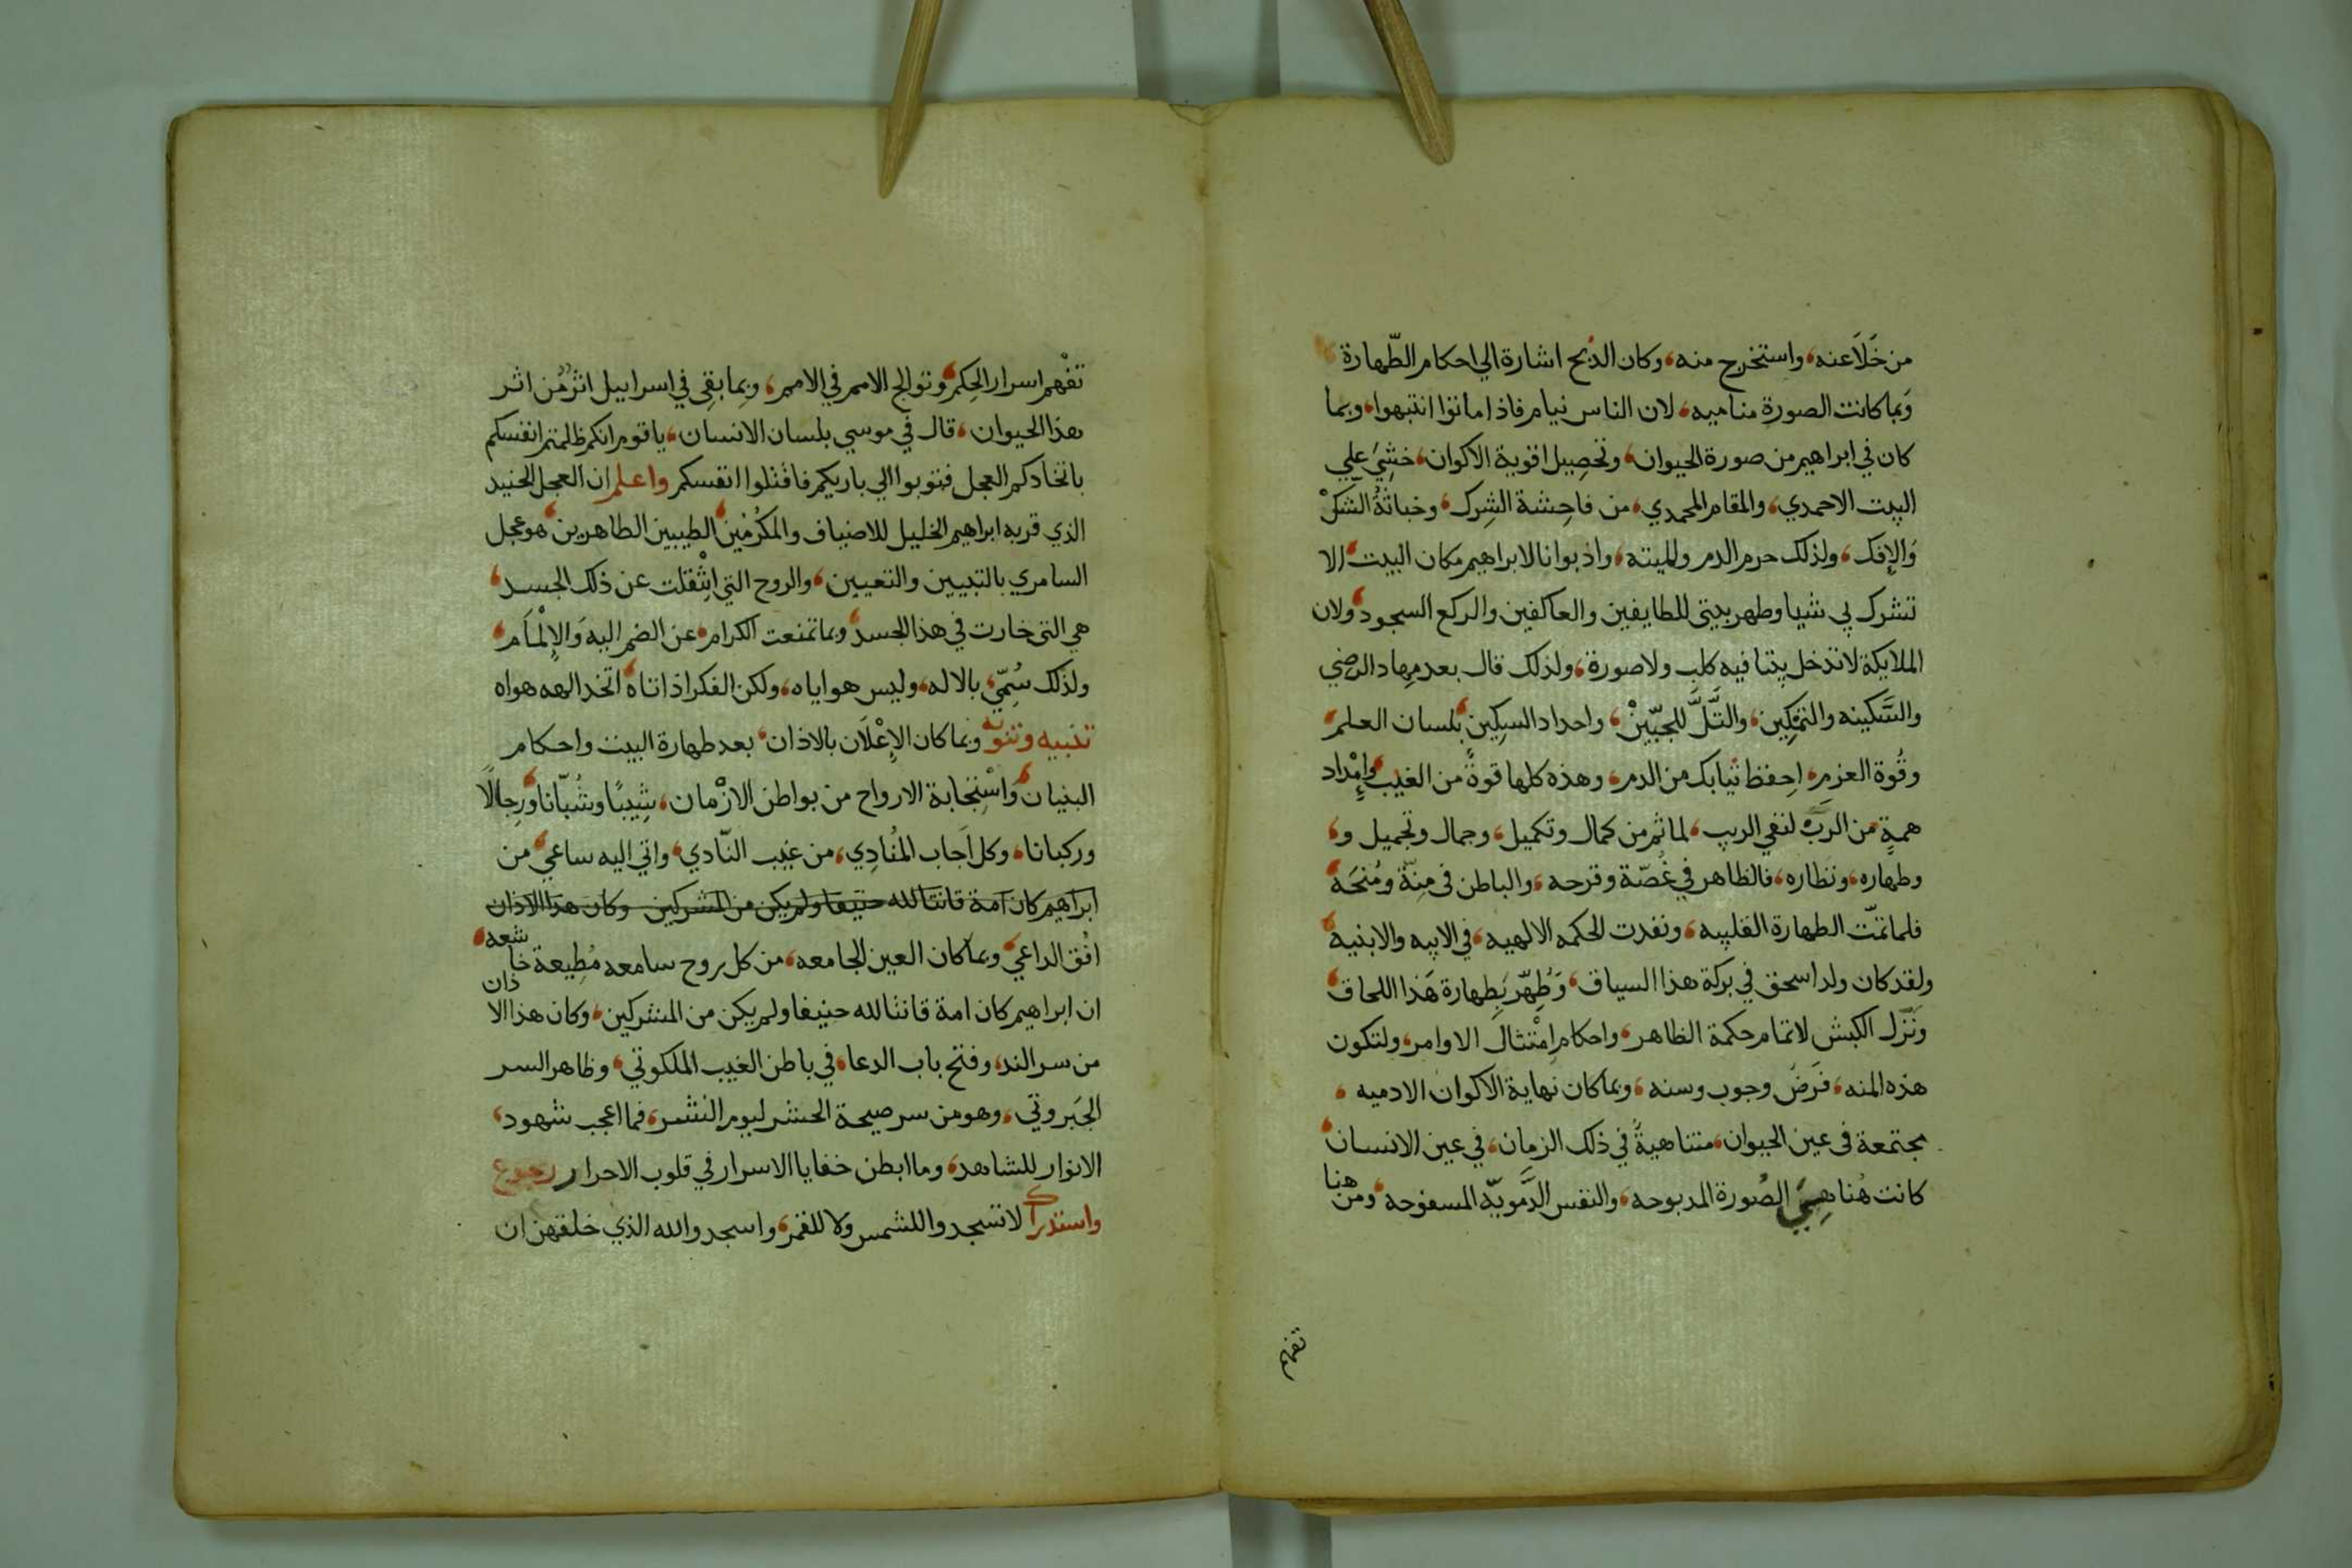 من خَلَاَ عنه، واستخرج منه، وكان الذبح اشارة الي احكام الطّهارة،
وَبما كانت الصورة مناميه، لان الناس نيام فاذا ماتوا انتبهوا، وبما
كان في ابراهيم من صورة الحيوان، وتحصيل اقوية الاكوان، خشِيَ علي
البيت الاحمدي، والمقام المحمدي، من فاحِشة الشِرك، وخباثةُ الشّكّ
وَالإفك، ولذلك حرم الدم ولميته، واذ بوانا لابراهيم مكان البيت، الا
تشرك بي شيا وطهر بيتي للطايفين والعاكفين والركع السجود، ولان
الملايكة لا تدخل بيتا فيه كلب ولا صورة، ولذلك قال بعد مِهاد الرضي
والسَّكينه والتمْكِين، والتَّلَّ للجبّينْ، واحداد السِكين، بلسان العلم،
وقُوة العزم، اِحفظ ثيابك من الدم، وهذه كلها قوةً من الغيب، وإمْداد
همةٍ من الربّ لنفي الريب، لما ثم من كمال وتكميل، وجمال وتجميل و،
وطهاره، ونظاره، فالظاهر في غُصّة وقرحه، والباطن في مِنّة ومُنحَه،
فلما تمّت الطهارة القلبيه، ونفدت الحكمه الالهيه، في الابيه والابنيه،
ولقد كان ولد اسحق في بركة هذا السياق، وَطُهِّر بَطِهارة هَذا اللحاق،
ونَزّل الكبش لاتمام حكمة الظاهر، واحكام اِمْتثال الاوامر، ولتكون
هذه المنه، فَرضَ وجوب وسنه، وبما كان نهاية الاكوان الادميه،
مجتمعة في عين الحيوان، متناهيةً في ذلك الزمان، في عين الانسان،
كانت هُنا هِيَ الصُورة المدبوحه، والنفس الدَّمويّه المسفوحه، ومن هنا
تفهم
تفْهم اسرار الحِكم، وتوالج الامم في الامم، وبما بقِى في اسراييل اثرٌ من اثر
هذا الحيوان، قال في موسي بلسان الانسان، يا قوم انكم ظلمتم انفسكم
باتخادكم العجل فتوبوا الي باريكم فاقتلوا انفسكم واعلم ان العجل الحنيد
الذي قربه ابراهيم الخليل للاضياف والمكرُمْين، الطيبين الطاهرين، هو عجل
السامري بالتبيين والتعيين، والروح التي اِنْتقلت عن ذلك الجسد،
هي التي خارت في هذا الجسد، وبما تمنعت الكرام، عن الضم اليه وَالإلْمَام،
ولذلك سُمّيَ، بالاله، وليس هو اياه، ولكن الفكر اذا تاه، اتخد الهه هواه
تنبيه وتنويه وبما كان الإعْلَان بالاذان، بعد طهارة البيت واحكام
البنيان، وَاسْتِجابة الارواح من بواطن الازْمان، شِيبًا وشُبّانا، ورِجالًا
وركبانا، وكل اَجاب المُنادِي، من غيب النّادي، واتي اليه ساعي، من
ابراهيم كان امة قانتا لله حنيفا ولم يكن من المشركين وكان هذا الاذان
افُق الداعي، وبما كان العين الجامعه، من كل روح سامعه مُطيعة خاشعه،
ان ابراهيم كان امة قانتا لله حنيفا ولم يكن من المشركين، وكان هذا الاذان
من سر الندا، وفتح باب الدعا، في باطن الغيب الملكوتي، وظاهر السر
الجَبروتي، وهو من سر صيحة الحشر ليوم النشر، فما اعجب شهود،
الانوار للشاهد، وما ابطن خفايا الاسرار في قلوب الاحرار رجوع
واستدراك لا تسجدوا للشمس ولا للقمر، واسجدوا لله الذي خلقهن ان